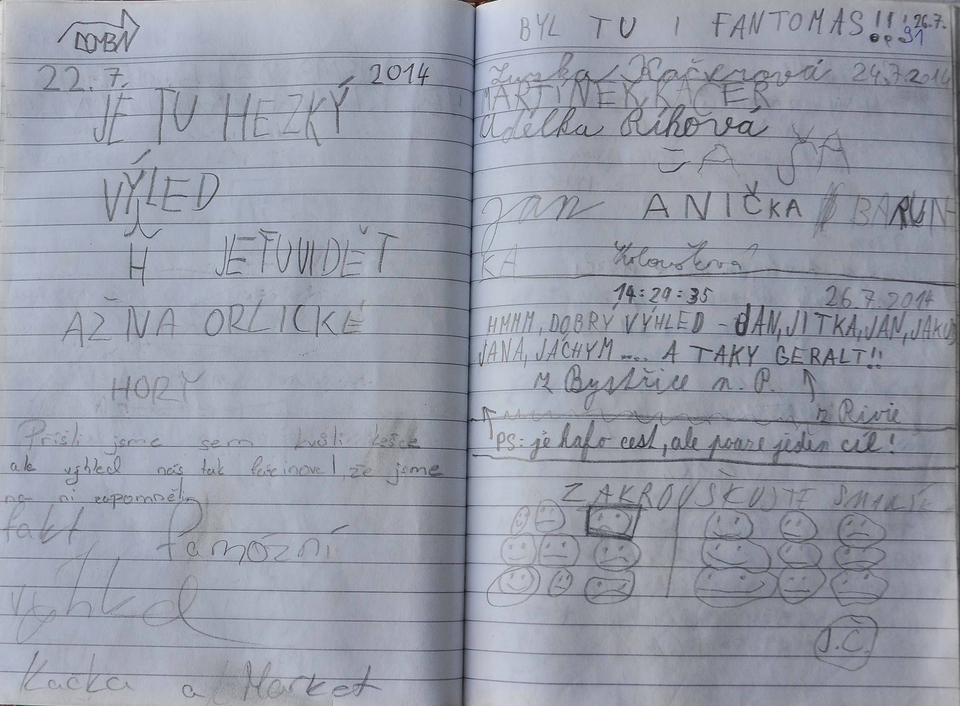 DOMBN
22.7. 2014
JE TU HEZKÝ
VÝLED
H JE TU VIDĚT
AŽ NA ORLICKÉ
HORY
Přišli jsme sem kvůli kešce
ale výhled nás tak fascinoval, že jsme
na ni zapomněli
fakt famózní
výhled
Kačka a Market
BYL TU I FANTOMAS!!! 26.7.
Kačerová 24.7.2014
MARTÍNEK KAČER
Adélka Říhová
JÁ ŠÁ
Jan ANIČKA BARUN-
KA
14:29:35 26.7.2014
HMMM, DOBRÝ VÝHLED - JAN, JITKA, JAN, JAKUB,
JANA, JÁCHYM .... A TAKY GERALT!!
z Bystřice n. P.
z Rivie
PS: je hafo cest, ale pouze jeden cíl!
ZAKROUŽKUJTE SMAJLÍK
J.Č.